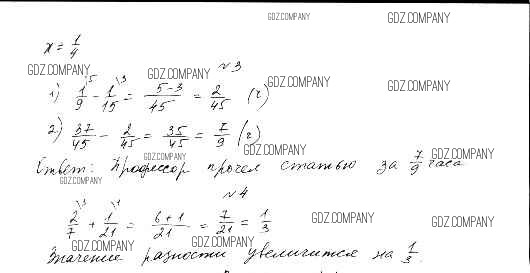 x = 1/4
№3
1) 1/9 \5 - 1/15 \3 = 5-3/45 = 2/45 (ч)
2) 37/45 - 2/45 = 35/45 = 7/9 (ч)
Ответ: Профессор прочел статью за 7/9 часа
№4
2/7 \3 + 1/21 \1 = 6+1/21 = 7/21 = 1/3
Значение разности увеличится на 1/3.
GDZ.COMPANY
GDZ.COMPANY
GDZ.COMPANY
GDZ.COMPANY
GDZ.COMPANY
GDZ.COMPANY
GDZ.COMPANY
GDZ.COMPANY
GDZ.COMPANY
GDZ.COMPANY
GDZ.COMPANY
GDZ.COMPANY
GDZ.COMPANY
GDZ.COMPANY